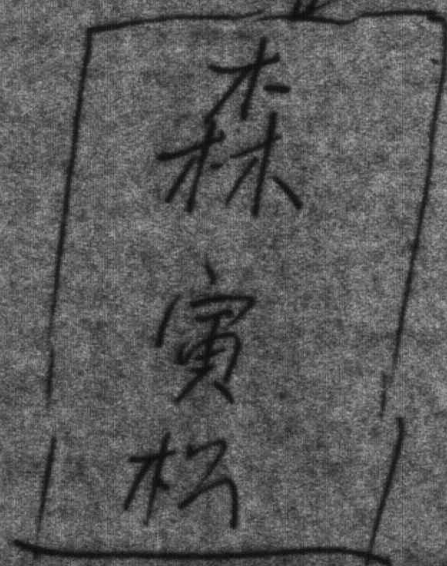 森寅松